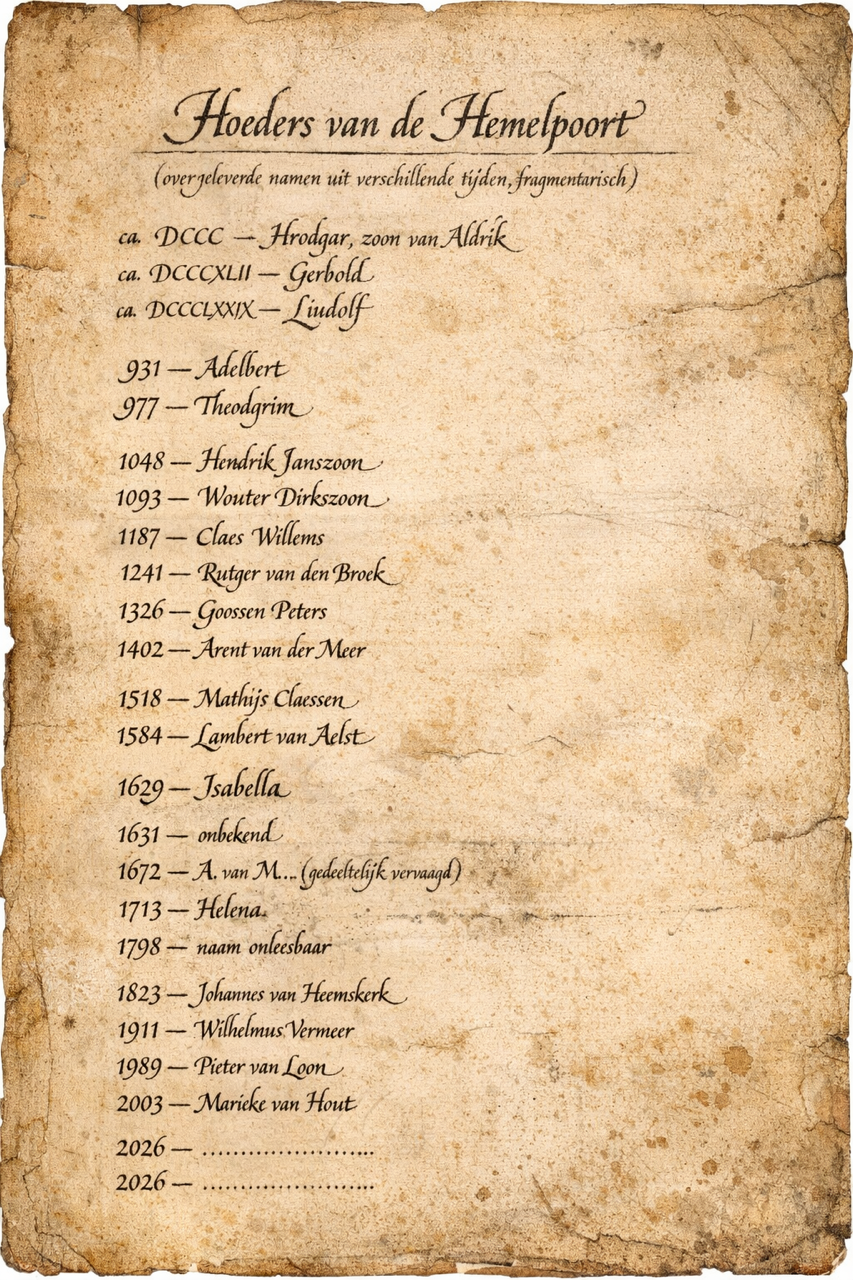 Hoeders van de Hemelpoort
(overgeleverde namen uit verschillende tijden, fragmentarisch)
ca. DCCC — Hrodgar, zoon van Aldrik
ca. DCCCXLII — Gerbold
ca. DCCCLXXIX — Liudolf
931 — Adelbert
977 — Theodgrim
1048 — Hendrik Janszoon
1093 — Wouter Dirkszoon
1187 — Claes Willems
1241 — Rutger van den Broek
1326 — Goossen Peters
1402 — Arent van der Meer
1518 — Mathijs Claessen
1584 — Lambert van Aelst
1629 — Isabella
1631 — onbekend
1672 — A. van M... (gedeeltelijk vervaagd)
1713 — Helena
1798 — naam onleesbaar
1823 — Johannes van Heemskerk
1911 — Wilhelmus Vermeer
1989 — Pieter van Loon
2003 — Marieke van Hout
2026 — ........................
2026 — ........................